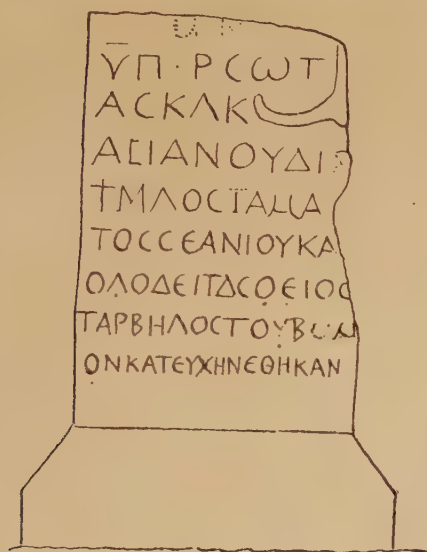 ῩΠ·ΡϹωΤ
ΑϹΚΛΚ
ΑϹΙΑΝΟΥΔΙ
ϮΜΛΟϹΪΑΜΑ
ΤΟϹϹΕΑΝΙΟΥΚΑ
ΟΛΟΔΕΙΤΔϹΟΕΙΟϹ
ΤΑΡΒΗΛΟϹΤΟΥΒωΜ
ΟΝΚΑΤΕΥΧΗΝΕΘΗΚΑΝ